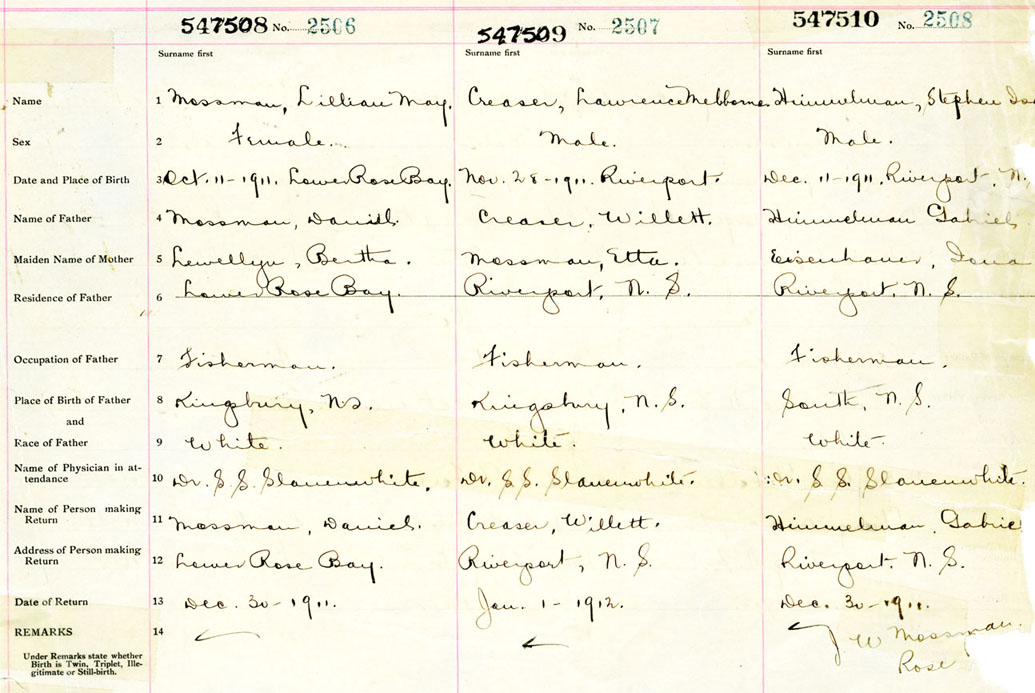 547508 No. 2506 547509 No. 2507 547510 No. 2508
Surname first Surname first Surname first
Name 1 Mossman, Lillian May. Creaser, Lawrence Himmelman, Stephen
Sex 2 Female. Male. Male.
Date and Place of Birth 3 Oct. 11-1911. Lower Rose Bay. Nov. 28-1911. Riverport. Dec. 11-1911. Riverport, N.
Name of Father 4 Mossman, Daniel. Creaser, Willett. Himmelman Gabriel
Maiden Name of Mother 5 Lewellyn, Bertha. Mossman, Etta. Eisenhauer,
Residence of Father 6 Lower Rose Bay. Riverport, N. S. Riverport. N. S.
Occupation of Father 7 Fisherman. Fisherman. Fisherman.
Place of Birth of Father 8 Kingsbury, N.S. Kingsbury, N.S. South, N. S.
and
Race of Father 9 White. White. White.
Name of Physician in at-
tendance 10 Dr. S. S. Slauenwhite. Dr. S. S. Slauenwhite. Dr. S. S. Slauenwhite.
Name of Person making
Return 11 Mossman, Daniel. Creaser, Willett. Himmelman, Gabrie
Address of Person making
Return 12 Lower Rose Bay. Riverport, N. S. Riverport. N. S.
Date of Return 13 Dec. 30-1911. Jan. 1-1912. Dec. 30-1911.
REMARKS 14
W Mossman.
Rose
Under Remarks state whether
Birth is Twin, Triplet, Ille-
gitimate or Still-birth.